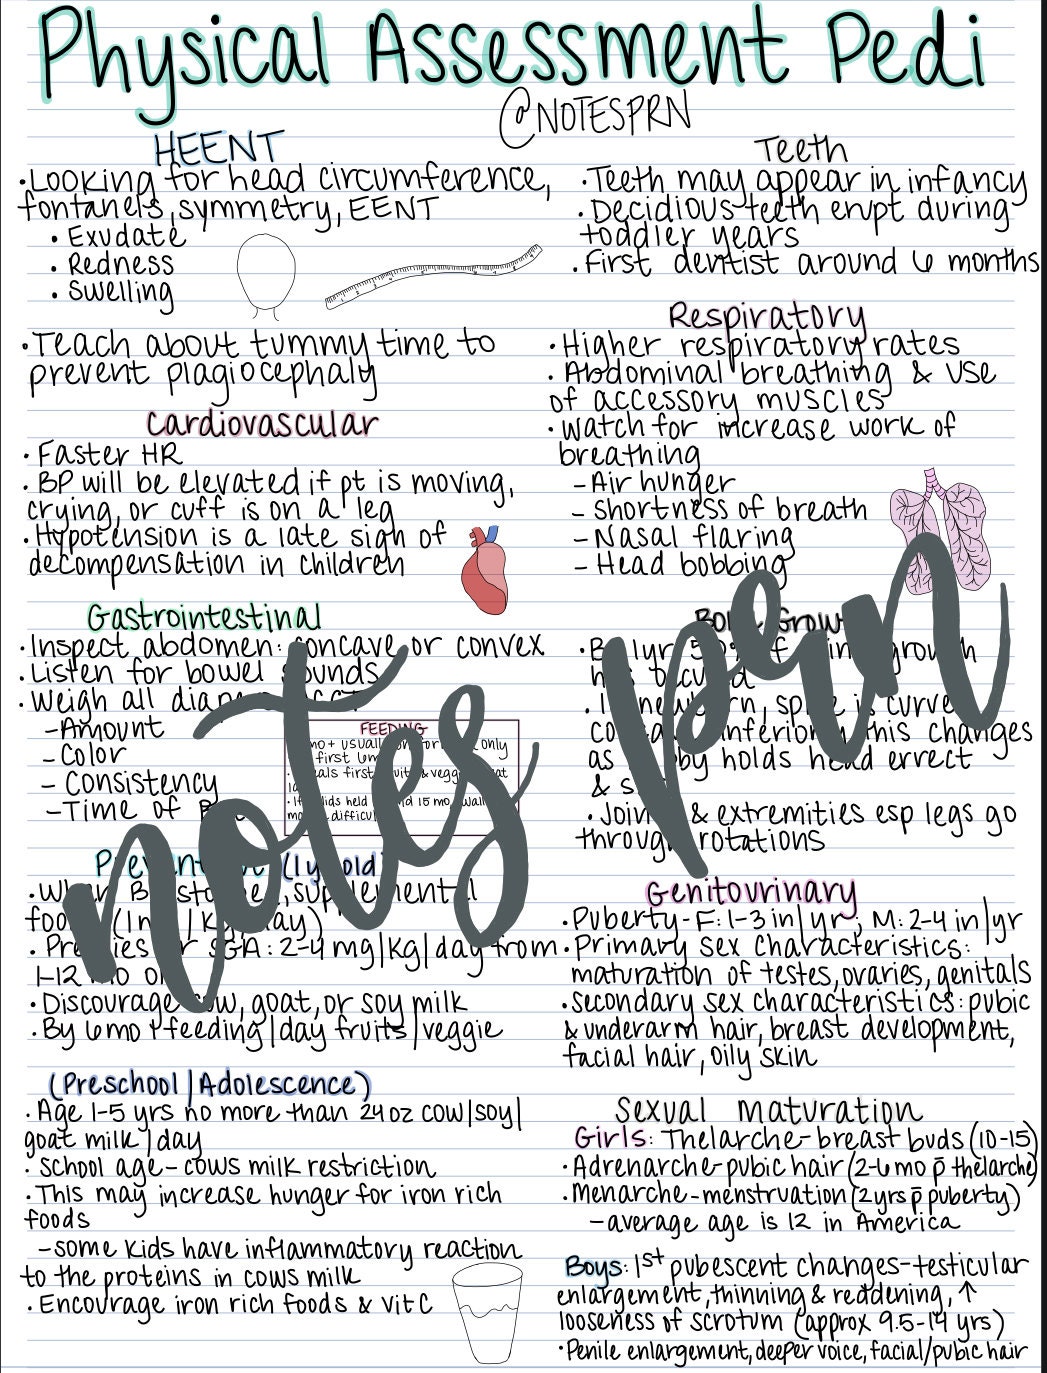 Physical Assessment Pedi
@NOTESPRN
HEENT
·Looking for head circumference,
fontanels, symmetry, EENT
· Exudate
· Redness
· Swelling
·Teach about tummy time to
prevent plagiocephaly
Cardiovascular
· Faster HR
· BP will be elevated if pt is moving,
crying, or cuff is on a leg
· Hypotension is a late sign of
decompensation in children
Gastrointestinal
·Inspect abdomen: concave or convex
· Listen for bowel sounds
· Weigh all
-Amount
-Color
- Consistency
-Time of
FEEDING
usually only
first
first & veggies
held 15 mo
(1
supplemental
day)
SGA: 2-4 mg/kg/day from
1-12 mo
· Discourage cow, goat, or soy milk
· By 6mo 1 feeding/day fruits/veggie
(Preschool/Adolescence)
· Age 1-5 yrs no more than 24oz cow/soy/
goat milk/day
· School age- cows milk restriction
· This may increase hunger for iron rich
foods
-some kids have inflammatory reaction
to the proteins in cows milk
· Encourage iron rich foods & vit C
Teeth
·Teeth may appear in infancy
· Decidious teeth erupt during
toddler years
· First dentist around 6 months
Respiratory
· Higher respiratory rates
· Abdominal breathing & use
of accessory muscles
· Watch for increase work of
breathing
-Air hunger
- Shortness of breath
-Nasal flaring
- Head bobbing
1yr growth
curve
this changes
as holds head errect
&
· & extremities esp legs go
through rotations
Genitourinary
·Puberty-F: 1-3 in/yr; M: 2-4 in/yr
·Primary sex characteristics:
maturation of testes, ovaries, genitals
·Secondary sex characteristics: pubic
& underarm hair, breast development,
facial hair, oily skin
Sexual maturation
Girls: Thelarche-breast buds (10-15)
·Adrenarche-pubic hair (2-6 mo p̄ thelarche)
·Menarche-menstruation (2yrs p̄ puberty)
-average age is 12 in America
Boys: 1st pubescent changes-testicular
enlargement, thinning & reddening, ↑
looseness of scrotum (approx 9.5-14 yrs)
·Penile enlargement, deeper voice, facial/pubic hair
notes prn